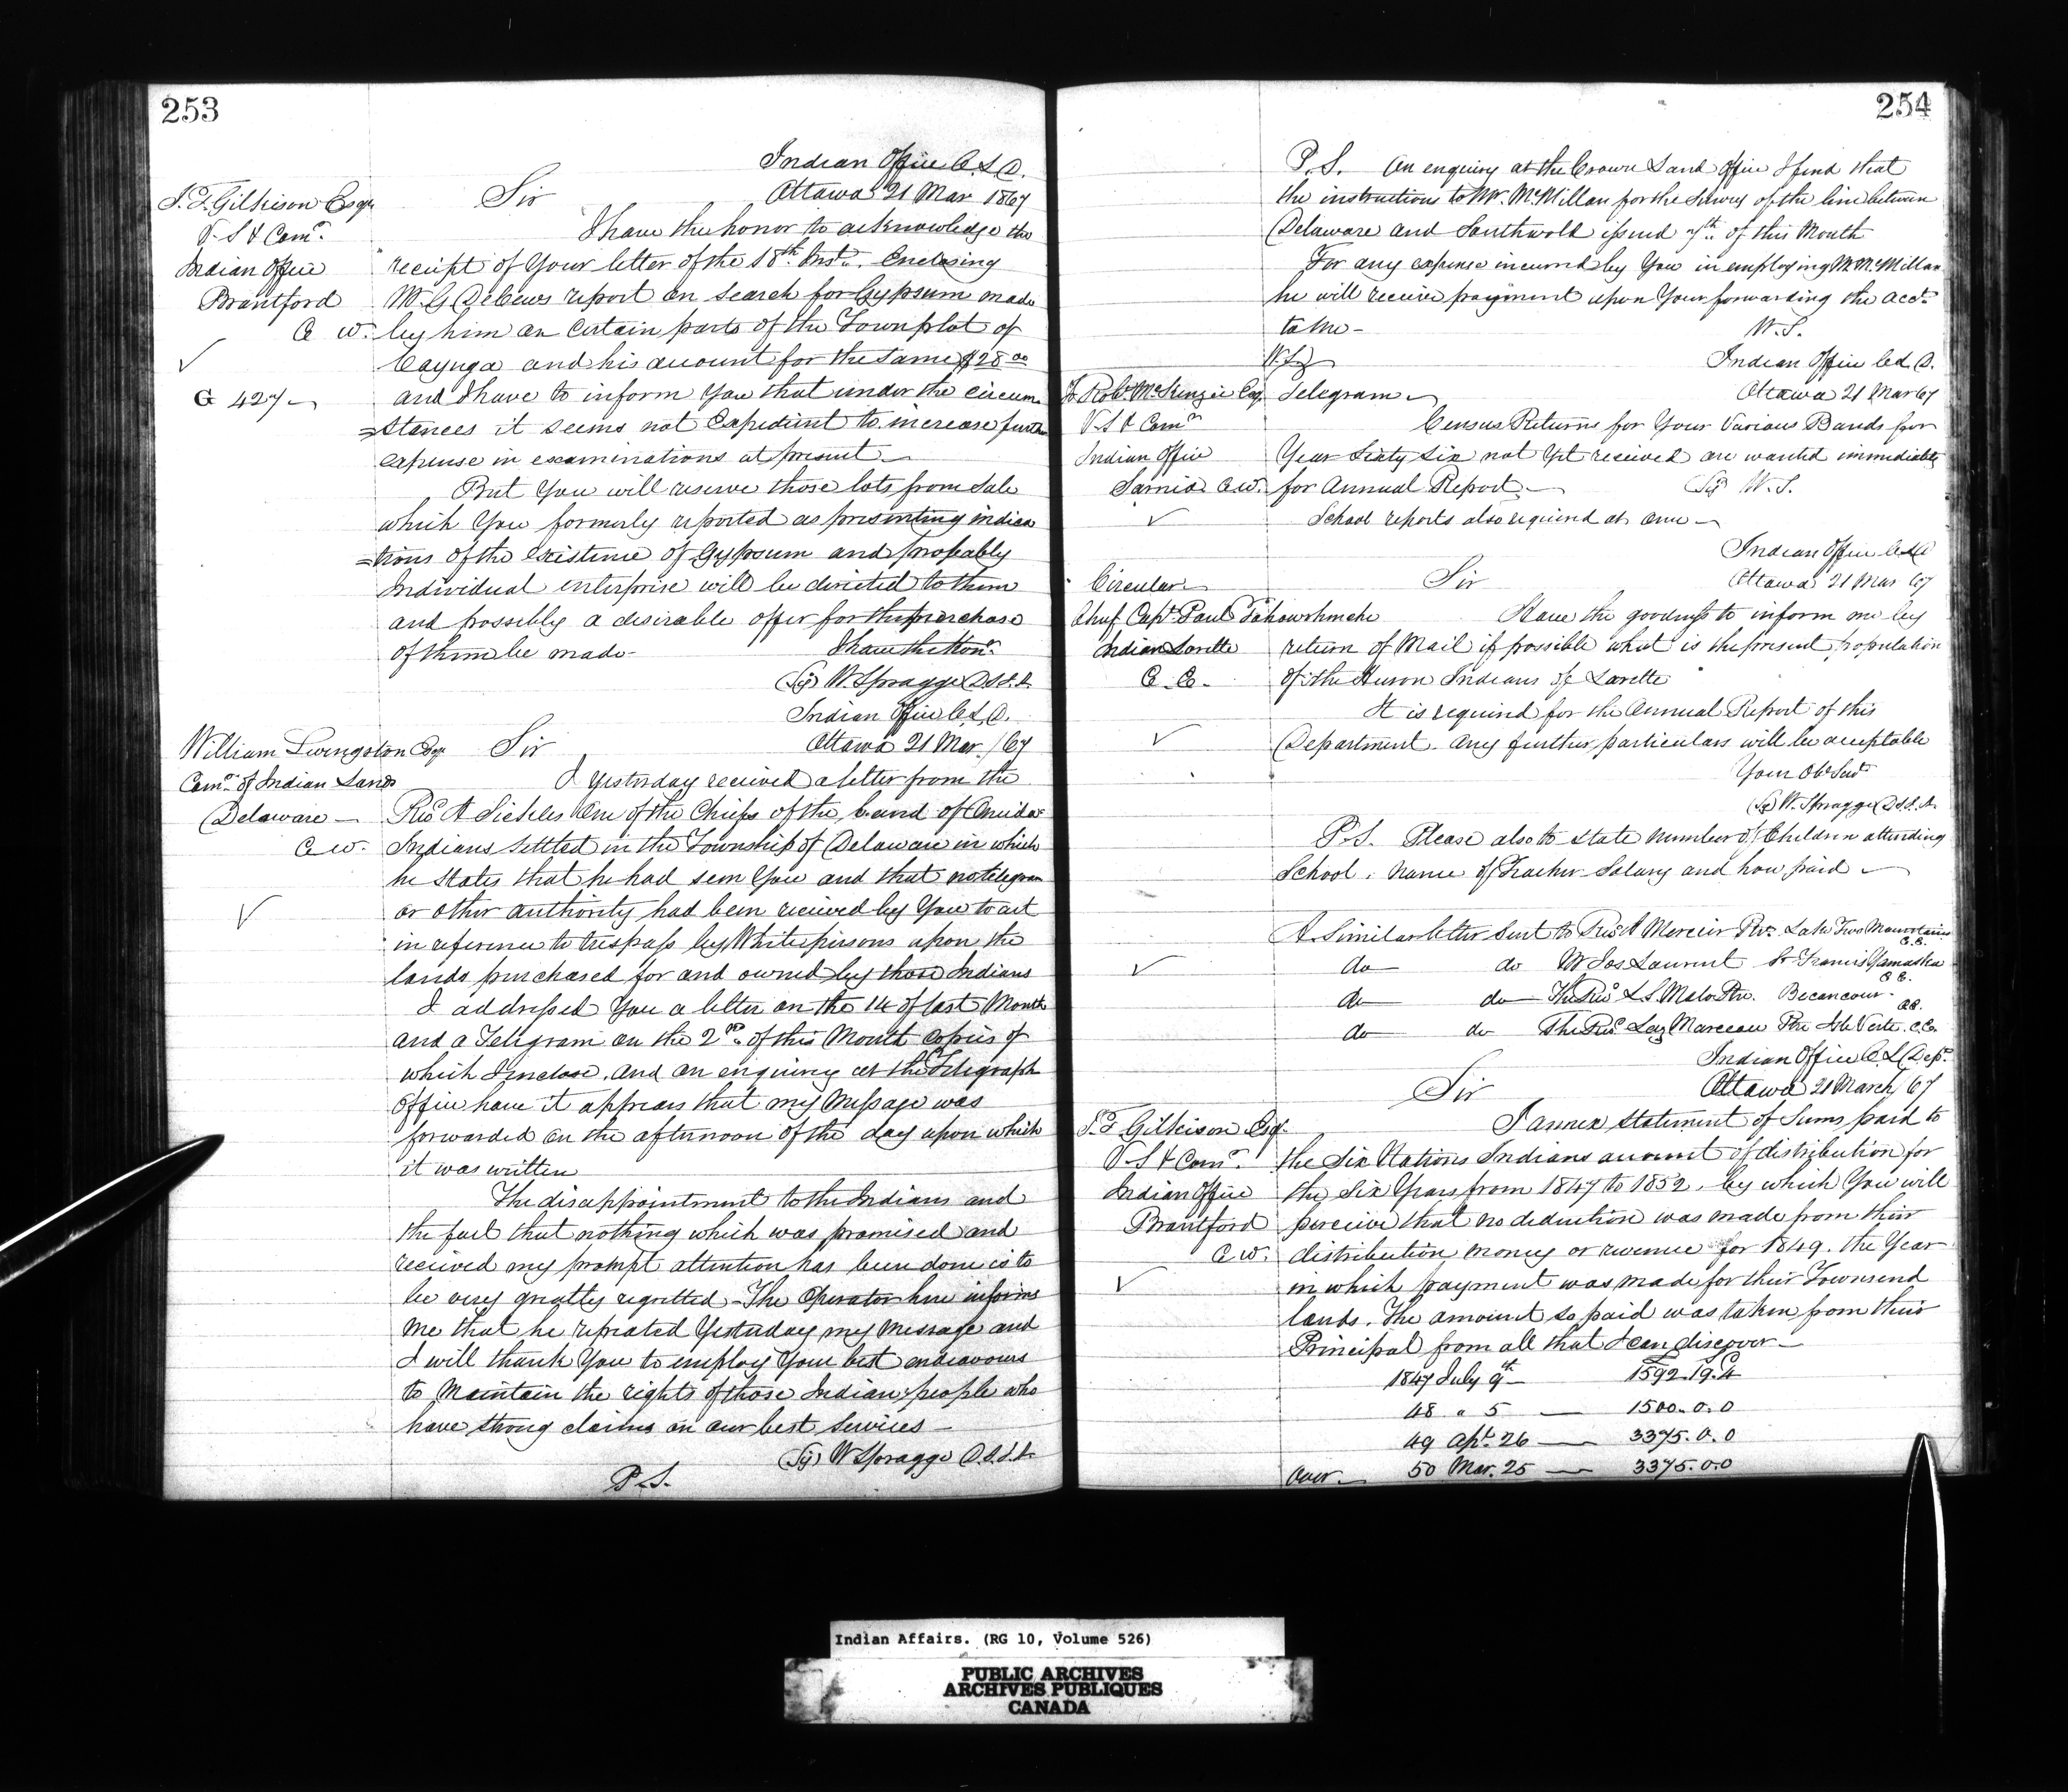 253
Indian Office C.L.D.
Ottawa 21 Mar 1867
J. T. Gilkison Esqr
V. S & Comr.
Indian Office
Brantford
C W.
G 427
Sir
I have the honor to acknowledge the
receipt of Your letter of the 18th Inst. Enclosing
W. G DeCews report on search for Gypsum made
by him on Certain parts of the Townplot of
Cayuga and his account for the same $28 00
and I have to inform You that under the circum
=stances it seems not Expedient to increase further
expense in examinations at present
But You will reserve those lots from Sale
which You formerly reported as presenting indica
=tions of the existence of Gypsum and probably
Individual enterprise will be directed to them
and possibly a desirable offer for the purchase
of them be made
I have the Honr.
(Sg) W. Spragge D.S.I.A.
Indian Office C.L.D.
Ottawa 21 Mar /67
William Livingston Esqr
Comr. of Indian Lands
Delaware
C W.
Sir
I Yesterday received a letter from the
Revd A Sickles One of the Chiefs of the band of Oneida
Indians Settled in the Township of Delaware in which
he States that he had seen You and that no telegram
or other authority had been received by You to act
in reference to trespass by White persons upon the
lands purchased for and owned by those Indians
I addressed You a letter on the 14 of last Month
and a Telegram on the 2nd of this Month copies of
which I inclose, and on enquiry at the Telegraph
Office have it appears that my Message was
forwarded on the afternoon of the day upon which
it was written
The disappointment to the Indians and
the fact that nothing which was promised and
received my prompt attention has been done is to
be very greatly regretted - The Operator here informs
me that he repeated Yesterday my Message and
I will thank You to employ Your best endeavours
to Maintain the rights of those Indian people who
have strong claims on our best Services
(Sg) W Spragge D.S.I.A.
P.S.
254
P.S. On enquiry at the Crown Land Office I find that
the instructions to Mr. McMillan for the Survey of the line between
Delaware and Southwold issued 7th of this Month
For any expense incurred by You in employing Mr McMillan
he will receive payment upon Your forwarding the acct.
to Me -
W. S.
Indian Office C.L.D.
Ottawa 21 Mar 67
To Robt McKenzie Esq
V.S & Comr
Indian Office
Sarnia C.W.
Telegram
Census Returns for Your Various Bands for
Year Sixty Six not Yet received are wanted immediately
for Annual Report
Sg W. S.
School reports also required at once
Indian Office C.L.D
Ottawa 21 Mar 67
Circular
Chief Capt. Paul Tahourhenche
Indian Lorette
C. E.
Sir
Have the goodness to inform me by
return of Mail if possible what is the present population
of the Huron Indians of Lorette
It is required for the Annual Report of this
Department. Any further particulars will be acceptable
Your Obt Servt
(Sg) W. Spragge D.S.I.A.
P.S. Please also to State number of Children attending
School. Name of Teacher - Salary and how paid
A Similar letter Sent to Revd A Mercier Ptr. Lake Two Mountains C.E.
do do Mr Jos Laurent St Francis Yamaska C E.
do do The Revd L.S. Malo Ptr. Becancour C.E.
do do The Revd Laz Marceau Ptr Isle Verte. C.E.
Indian Office C.L. Dept.
Ottawa 21 March /67
J. T Gilkison Esq.
V-S & Comr.
Indian Office
Brantford
C W.
Sir
I annex statement of Sums paid to
the Six Nations Indians account of distribution for
the Six Years from 1847 to 1852, by which You will
perceive that no deduction was made from their
distribution money or revenue for 1849. the Year
in which payment was made for their Townsend
lands. The amount so paid was taken from their
Principal from all that I can discover
1847 July 9th 1592.19.4
48 " 5 1500.0.0
49 Apl. 26 3375.0.0
Over 50 Mar. 25 3375.0.0
Indian Affairs. (RG 10, Volume 526)
PUBLIC ARCHIVES
ARCHIVES PUBLIQUES
CANADA